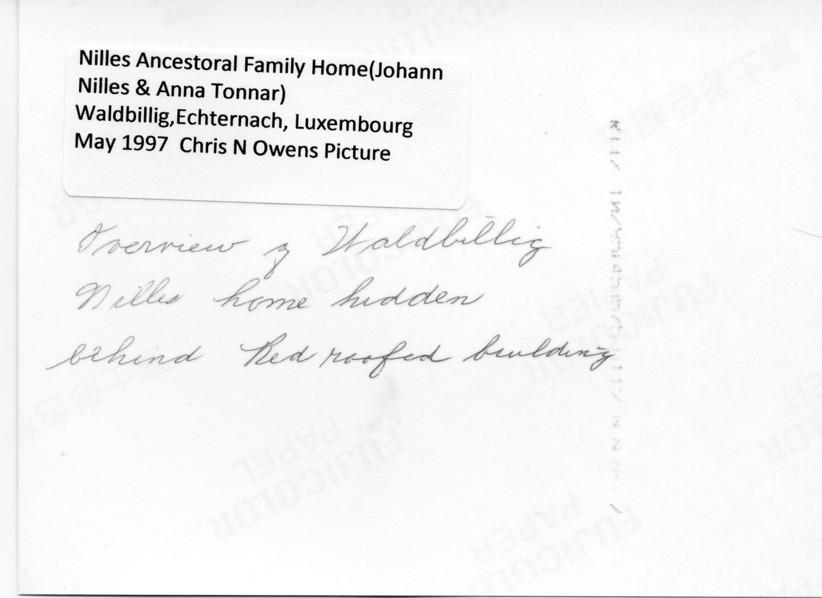 Nilles Ancestoral Family Home(Johann
Nilles & Anna Tonnar)
Waldbillig,Echternach, Luxembourg
May 1997  Chris N Owens Picture
Overview of Waldbillig
Nilles home hidden
behind Red roofed building
FUJICOLOR
PAPER
FUJICOLOR
PAPEL
FUJICOLOR
PAPER